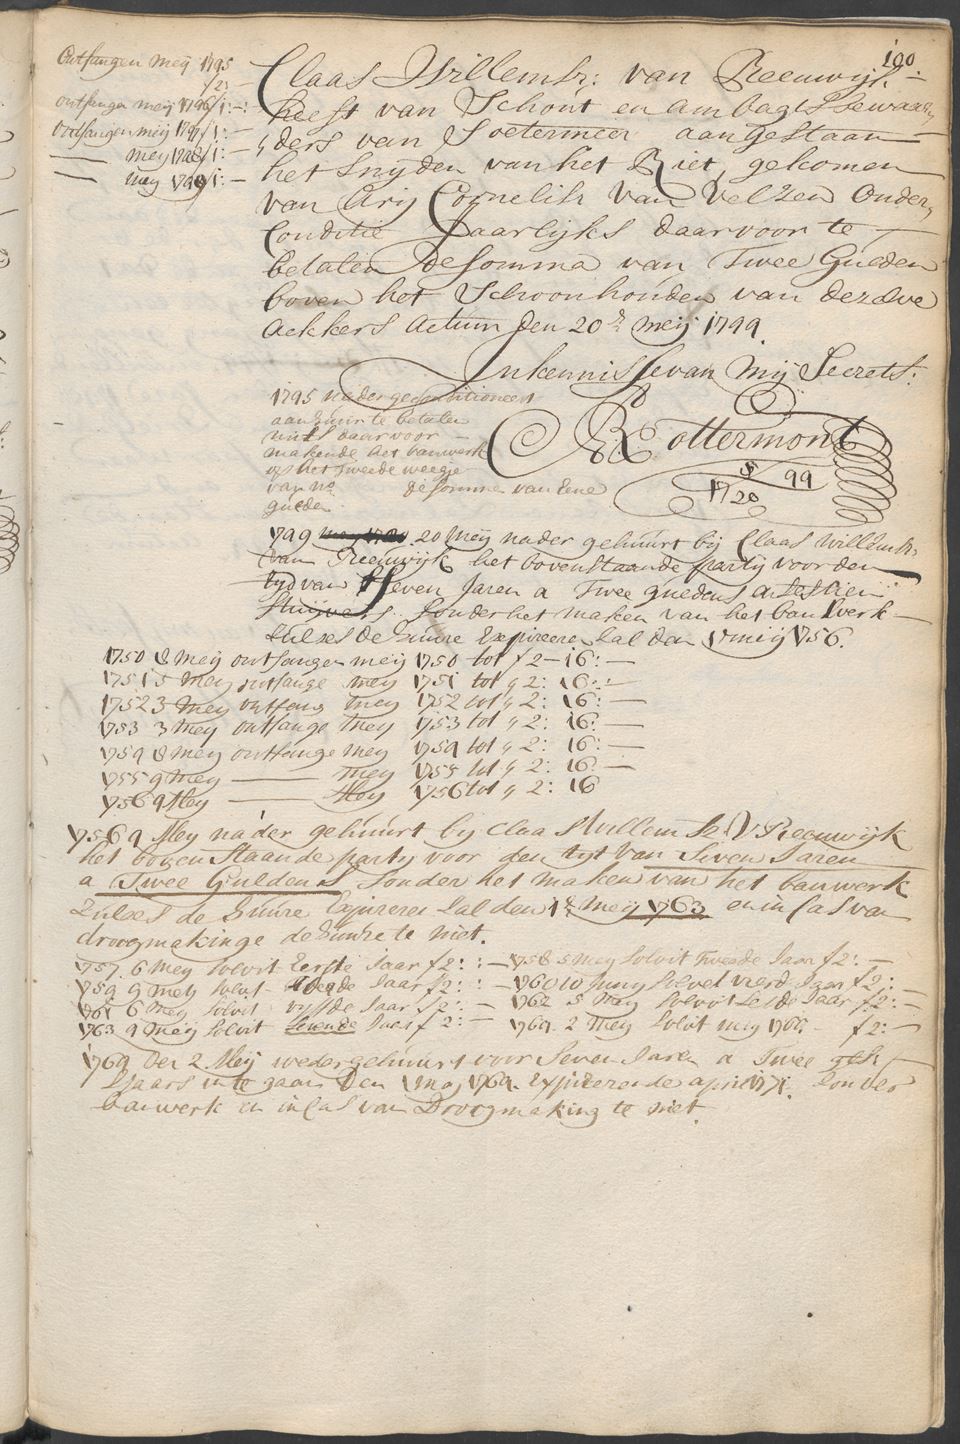 100.
Ontfangen meij 1745
f2:—
ontfangen meij 1746 f1:—:
ontfangen meij 1747 f1:—
— meij 1748 f1:—
— meij 1749 f1:—
Claas Willemsz: van Reeuwijk
heeft van Schout en ambagtsbewaar„
„ders van Soetermeer aangestaan
het snijden van het Riet, gekomen
van Arij Cornelisz van Velzen onder„
Conditie Jaarlijks daarvoor te —
betalen de somma van Twee Gulden
boven het Schoonhouden van dezelve
Ackkers Actum den 20e meij 1744.
In kennisse van mij Secrets:
Rottermont
5/20 1744
1745 nader geconditioneert
aan huur te betalen
mits daarvoor —
makende het bauwerk
op het Tweede weegje
van no de somma van Eene
gulden.
1749 20 Meij nader gehuurt bij Claas Willemsz:
van Reeuwijk het bovenstaande partij voor den
tijd van Seven Jaren a Twee guldens sestien
stuijvers sonder het maken van het bauwerk —
zulx de Huure Expireren sal den 1 meij 1756.
1750 8 meij ontfangen meij 1750 tot f2–16:—
1751 5 meij ontfange meij 1751 tot „ 2: 16:—
1752 3 meij ontfang meij 1752 tot „ 2: 16:—
1753 3 meij ontfange meij 1753 tot „ 2: 16:
1754 8 meij ontfange meij 1754 tot „ 2: 16:—
1755 9 meij — meij 1755 tot „ 2: 16:—
1756 9 Meij — Meij 1756 tot „ 2: 16
1756 9 Meij nader gehuurt bij Claas Willemsz V Reeuwijk
het boven staande partij voor den tijt van Seven Jaren
a Twee Guldens sonder het maken van het bauwerk
Zulx de Huure Expireren sal den 1e Meij 1763 en in Cas van
droogmakinge de Huure te niet.
1757. 6 Meij Solvit Eerste Jaar f2::— 1758 5 meij Solvit Tweede Jaar f2:—
1759 9 meij Solvit derde Jaar f2::— 1760 10 Junij Solvit vierd Jaar f2:—
1761 6 Meij Solvit vijfde Jaar f2:— 1762 5 Meij Solvit sesde Jaar f2:—
1763 9 Meij Solvit Sevende Jaar f2:— 1764 2 Meij Solvit meij 1764 f2:—
1764 Den 2 Meij weder gehuurt voor Seven Jaren a Twee gth
Sjaars in te gaan den 1 maij 1764 Expirerende april 1771. Zonder
bauwerk en in Cas van Droogmaking te niet.